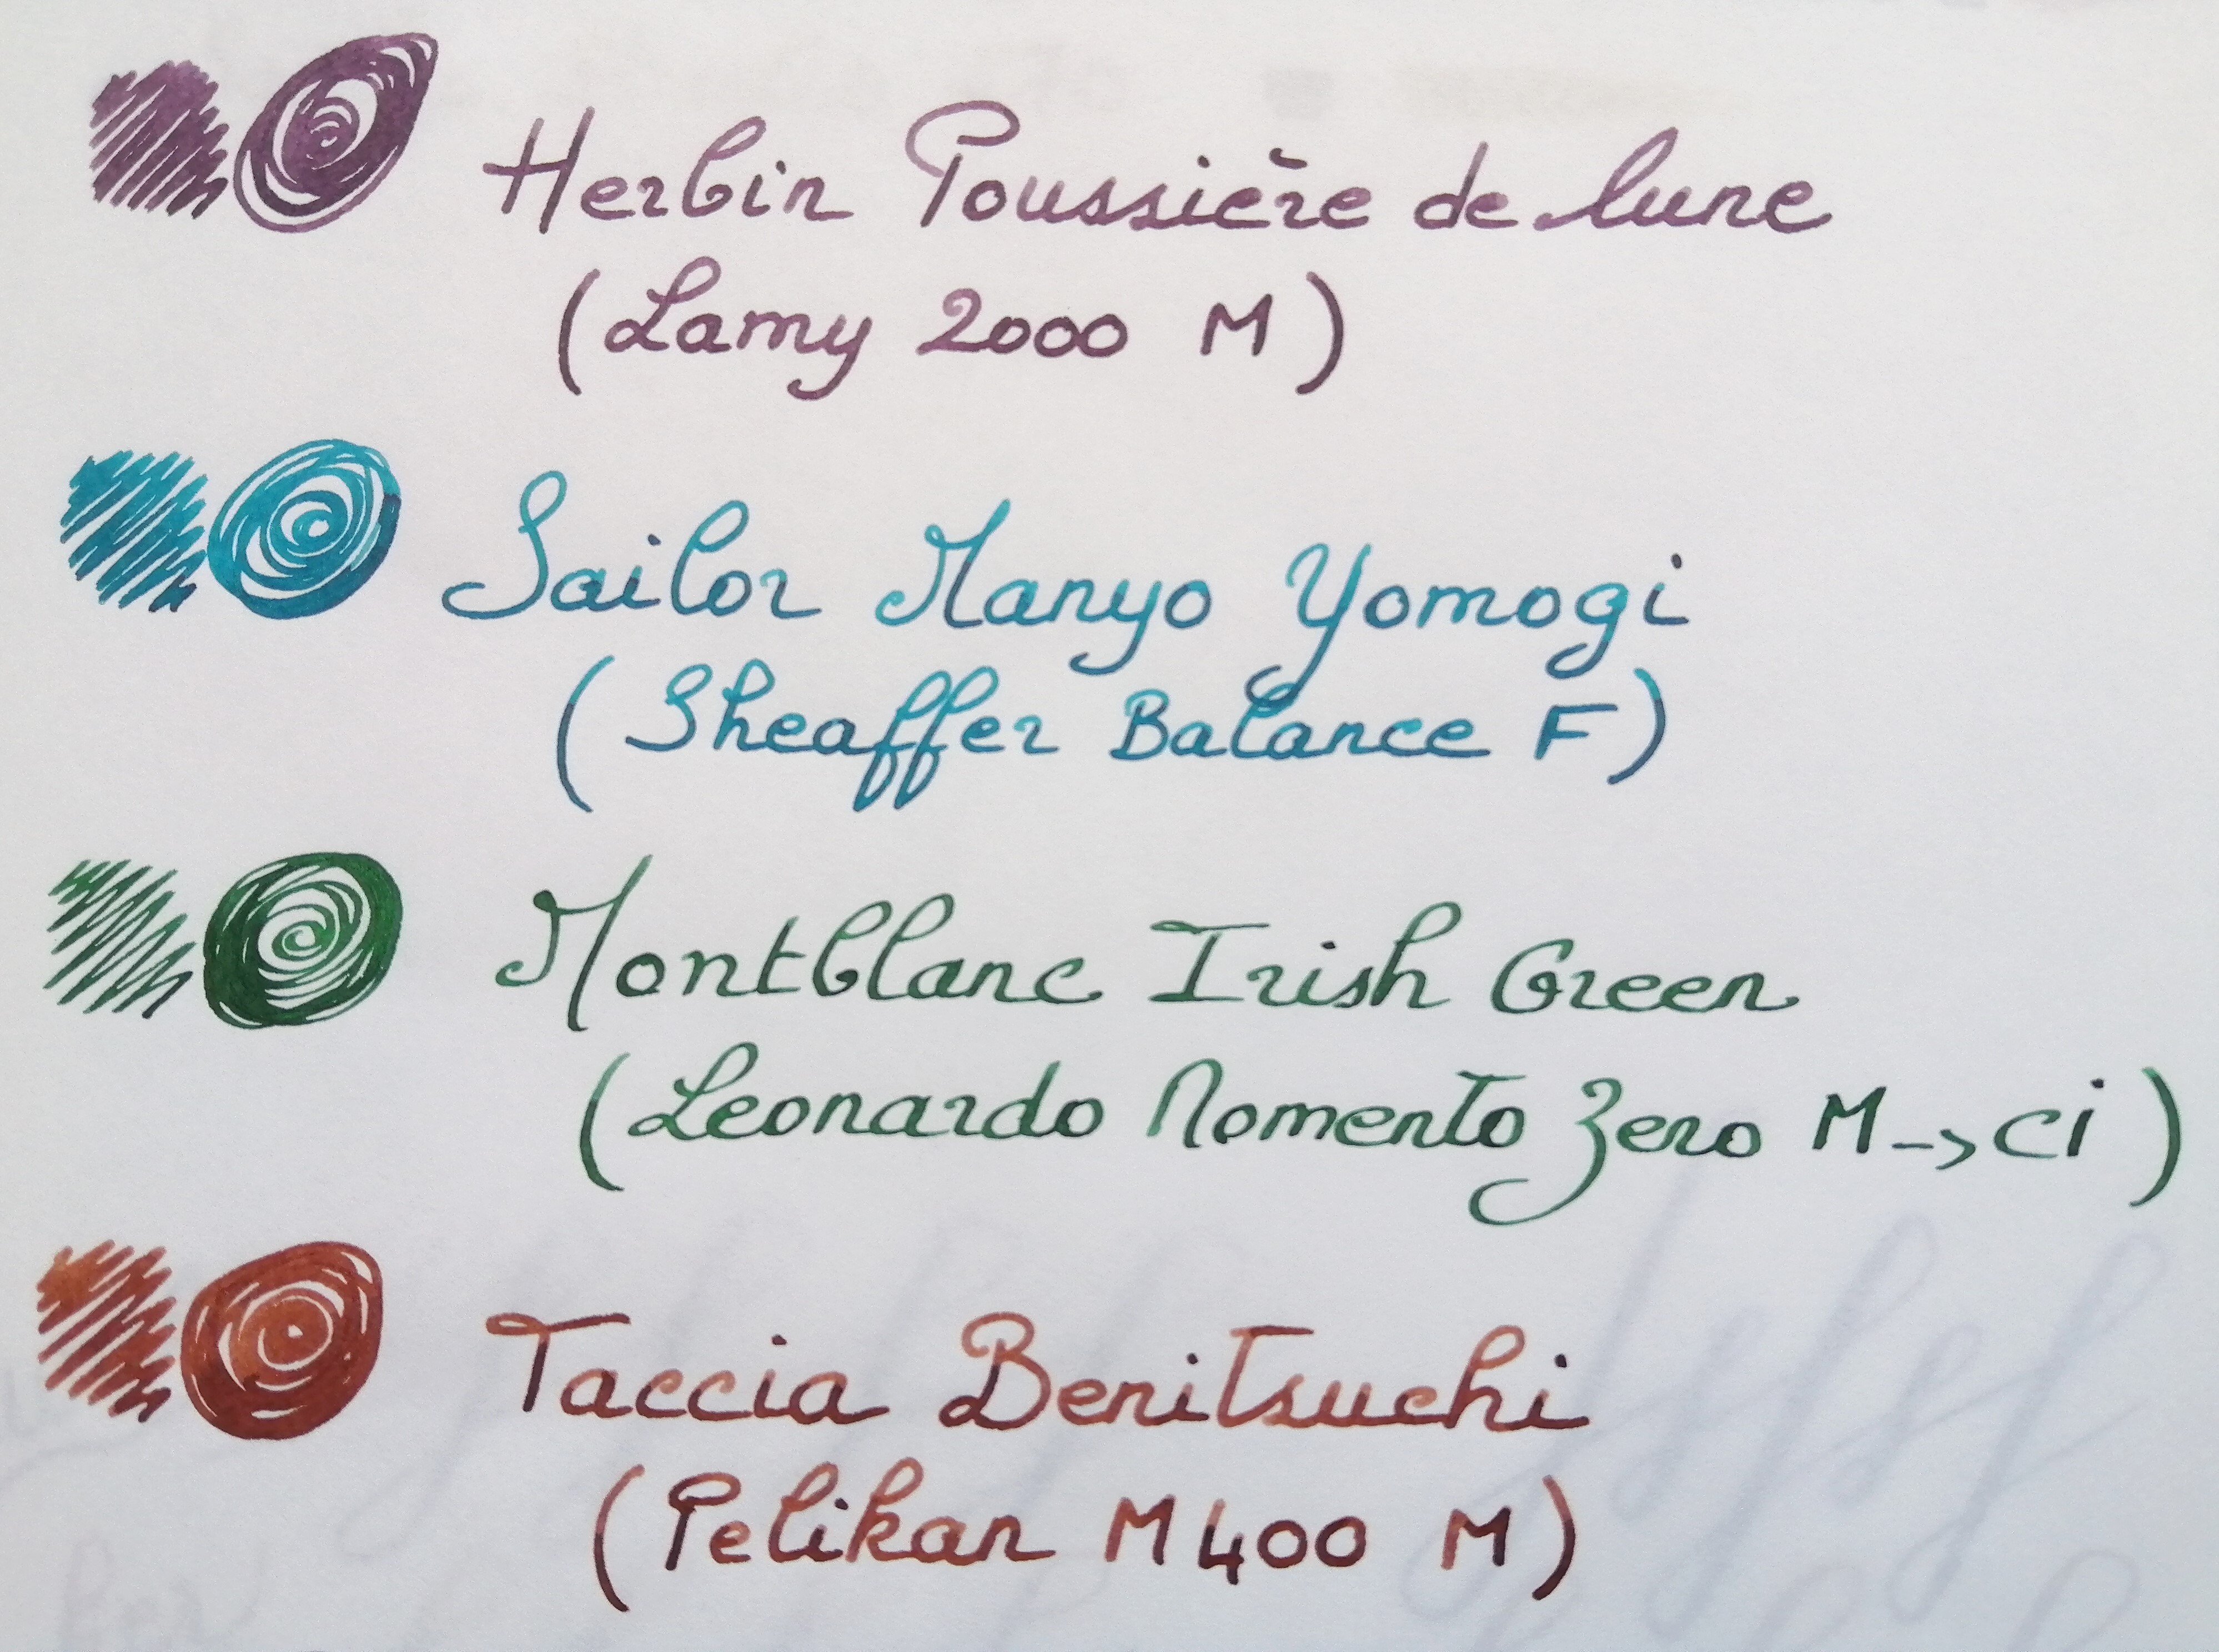 Herbin Poussière de lune
(Lamy 2000 M)
Sailor Manyo Yomogi
(Sheaffer Balance F)
Montblanc Irish Green
(Leonardo Momento Zero M->CI)
Taccia Benitsuchi
(Pelikan M400 M)